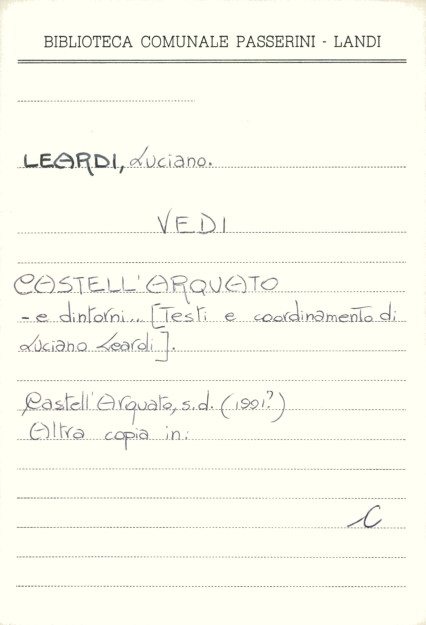 BIBLIOTECA COMUNALE PASSERINI - LANDI
LEARDI, Luciano.
VEDI
CASTELL'ARQUATO
- e dintorni... [Testi e coordinamento di
Luciano Leardi].
Castell'Arquato, s.d. (1991?)
Altra copia in:
C